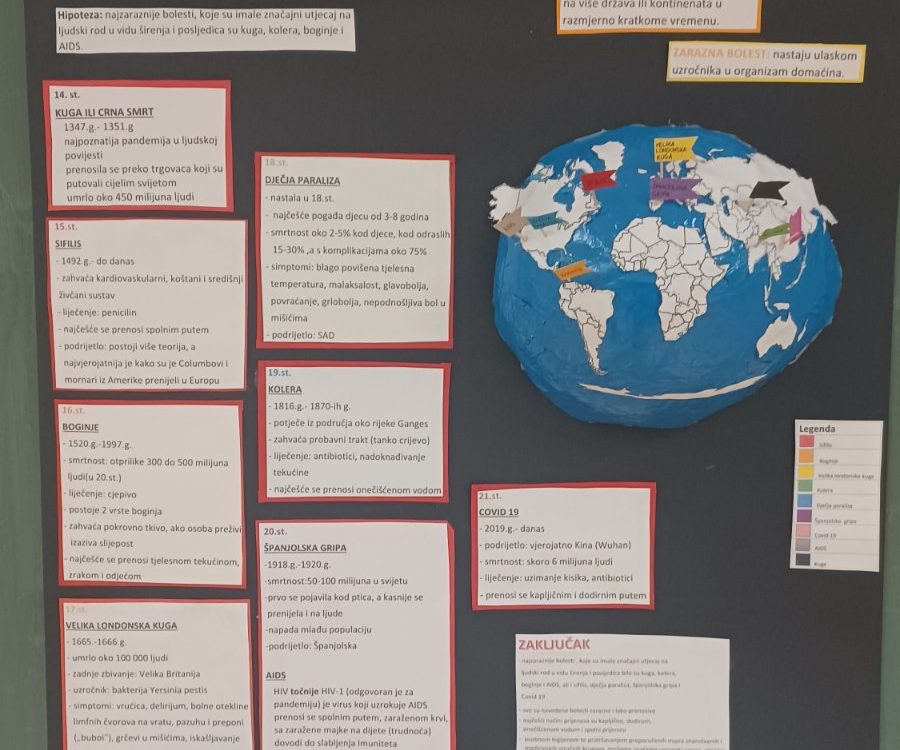 Hipoteza: najzaraznije bolesti, koje su imale značajni utjecaj na
ljudski rod u vidu širenja i posljedica su kuga, kolera, boginje i
AIDS.
na više država ili kontinenata u
razmjerno kratkome vremenu.
ZARAZNA BOLEST: nastaju ulaskom
uzročnika u organizam domaćina.
14. st.
KUGA ILI CRNA SMRT
1347.g.- 1351.g
najpoznatija pandemija u ljudskoj
povijesti
prenosila se preko trgovaca koji su
putovali cijelim svijetom
umrlo oko 450 milijuna ljudi
15.st.
SIFILIS
- 1492.g.- do danas
- zahvaća kardiovaskularni, koštani i središnji
živčani sustav
- liječenje: penicilin
- najčešće se prenosi spolnim putem
- podrijetlo: postoji više teorija, a
najvjerojatnija je kako su je Columbovi i
mornari iz Amerike prenijeli u Europu
16.st.
BOGINJE
- 1520.g.-1997.g.
- smrtnost: otprilike 300 do 500 milijuna
ljudi(u 20.st.)
- liječenje: cjepivo
- postoje 2 vrste boginja
- zahvaća pokrovno tkivo, ako osoba preživi
izaziva slijepost
- najčešće se prenosi tjelesnom tekućinom,
zrakom i odjećom
17.st.
VELIKA LONDONSKA KUGA
- 1665.-1666.g.
- umrlo oko 100 000 ljudi
- zadnje zbivanje: Velika Britanija
- uzročnik: bakterija Yersinia pestis
- simptomi: vrućica, delirijum, bolne otekline
limfnih čvorova na vratu, pazuhu i preponi
(„buboi"), grčevi u mišićima, iskašljavanje
18.st.
DJEČJA PARALIZA
- nastala u 18.st.
- najčešće pogađa djecu od 3-8 godina
- smrtnost oko 2-5% kod djece, kod odraslih
15-30% ,a s komplikacijama oko 75%
- simptomi: blago povišena tjelesna
temperatura, malaksalost, glavobolja,
povraćanje, grlobolja, nepodnošljiva bol u
mišićima
- podrijetlo: SAD
19.st.
KOLERA
- 1816.g.- 1870-ih g.
- potječe iz područja oko rijeke Ganges
- zahvaća probavni trakt (tanko crijevo)
- liječenje: antibiotici, nadoknađivanje
tekućine
- najčešće se prenosi onečišćenom vodom
20.st.
ŠPANJOLSKA GRIPA
-1918.g.-1920.g.
-smrtnost:50-100 milijuna u svijetu
-prvo se pojavila kod ptica, a kasnije se
prenijela i na ljude
-napada mlađu populaciju
-podrijetlo: Španjolska
AIDS
HIV točnije HIV-1 (odgovoran je za
pandemiju) je virus koji uzrokuje AIDS
prenosi se spolnim putem, zaraženom krvi,
sa zaražene majke na dijete (trudnoća)
dovodi do slabljenja imuniteta
21.st.
COVID 19
- 2019.g.- danas
- podrijetlo: vjerojatno Kina (Wuhan)
- smrtnost: skoro 6 milijuna ljudi
- liječenje: uzimanje kisika, antibiotici
- prenosi se kapljičnim i dodirnim putem
VELIKA
LONDONSKA
KUGA
ŠPANJOLSKA
GRIPA
Legenda
Sifilis
Boginje
Velika londonska kuga
Kolera
Dječja paraliza
Španjolska gripa
Covid 19
AIDS
Kuga
ZAKLJUČAK
- najzaraznije bolesti, koje su imale značajni utjecaj na
ljudski rod u vidu širenja i posljedica bile su kuga, kolera,
boginje i AIDS, ali i sifilis, dječja paraliza, španjolska gripa i
Covid 19
- sve su navedene bolesti zarazne i lako prenosive
- najčešći načini prijenosa su kapljično, dodirom,
onečišćenom vodom i spolni prijenosi